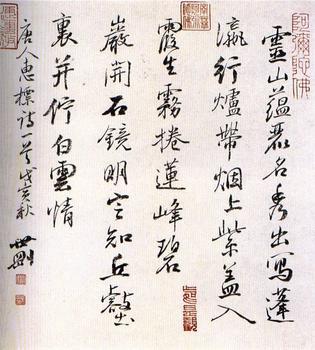 阿彌陀佛
靈山蘊麗名秀出寫蓬
瀛行爐帶烟上紫盖入
霞生霧捲蓮峰碧
巖開石鏡明定知丘壑
裏并佇白雲情
唐惠標詩一首 亥秋